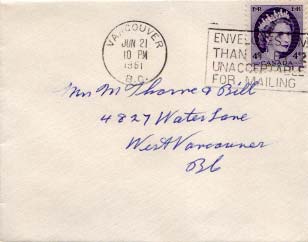 VANCOUVER
JUN 21
10 PM
1961
B.C.
ENVEL
THAN
UNACCEPTABLE
FOR MAILING
E II R E II R
4¢ 4¢
CANADA
Mrs M Thorne & Bill
4827 Water Lane
West Vancouver
BC